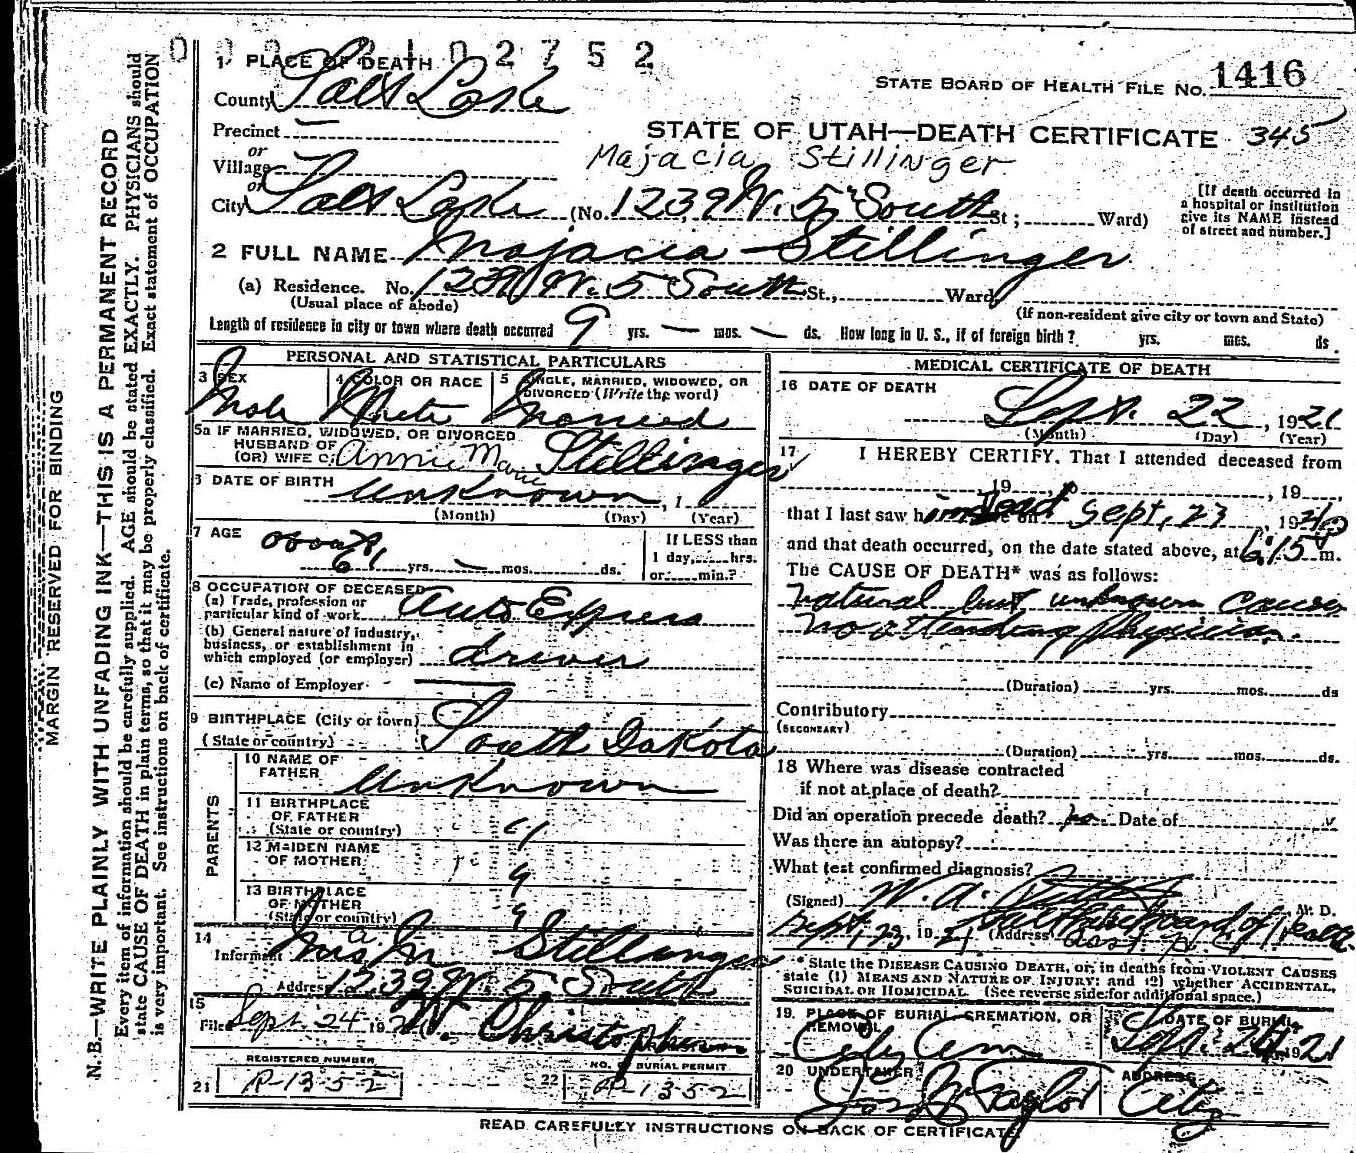 0 0 2 1 0 2 7 5 2
1 PLACE OF DEATH
STATE BOARD OF HEALTH FILE NO. 1416
County Salt Lake
Precinct —
STATE OF UTAH—DEATH CERTIFICATE 345
or
Village —
Majacia Stillinger
or
City Salt Lake (No. 1239 W. 5" South St; Ward)
[If death occurred in
a hospital or institution
give its NAME instead
of street and number.]
2 FULL NAME Majacia Stillinger
(a) Residence. No. 1239 W. 5 South St., Ward,
(Usual place of abode)
(If non-resident give city or town and State)
Length of residence in city or town where death occurred 9 yrs. — mos. — ds. How long in U. S., if of foreign birth? yrs. mos. ds.
PERSONAL AND STATISTICAL PARTICULARS
3 SEX
Male
4 COLOR OR RACE
White
5 SINGLE, MARRIED, WIDOWED, OR
DIVORCED (Write the word)
Married
5a IF MARRIED, WIDOWED, OR DIVORCED
HUSBAND OF
(OR) WIFE OF Annie Marie Stillinger
6 DATE OF BIRTH
Unknown , 1
(Month) (Day) (Year)
7 AGE
about
61 yrs. — mos. ds.
If LESS than
1 day, hrs.
or min.?
8 OCCUPATION OF DECEASED
(a) Trade, profession or
particular kind of work Auto Express
(b) General nature of industry,
business, or establishment in
which employed (or employer) driver
(c) Name of Employer —
9 BIRTHPLACE (City or town)
(State or country) South Dakota
PARENTS
10 NAME OF
FATHER Unknown
11 BIRTHPLACE
OF FATHER
(State or country) "
12 MAIDEN NAME
OF MOTHER "
13 BIRTHPLACE
OF MOTHER
(State or country) "
14
Informant Mrs A M Stillinger
Address 1239 W. 5 South
15
Filed Sept. 24 192
REGISTERED NUMBER
21 P-1352
NO. BURIAL PERMIT
22 P-1352
MEDICAL CERTIFICATE OF DEATH
16 DATE OF DEATH
Sept. 22, 1921
(Month) (Day) (Year)
17 I HEREBY CERTIFY, That I attended deceased from
, 19 , to , 19 ,
that I last saw him dead on Sept, 23, 1921
and that death occurred, on the date stated above, at 6:15 P m.
The CAUSE OF DEATH* was as follows:
natural but unknown causes
no attending physician.
(Duration) yrs. mos. ds
Contributory
(SECONDARY)
(Duration) yrs. mos. ds.
18 Where was disease contracted
if not at place of death?
Did an operation precede death? no Date of
Was there an autopsy?
What test confirmed diagnosis?
(Signed) W. A. M. D.
Sept, 23, 1921 (Address) Board of Health
* State the DISEASE CAUSING DEATH, or, in deaths from VIOLENT CAUSES
state (1) MEANS AND NATURE OF INJURY; and (2) whether ACCIDENTAL,
SUICIDAL OR HOMICIDAL. (See reverse side for additional space.)
19. PLACE OF BURIAL, CREMATION, OR
REMOVAL
City Cem
DATE OF BURIAL
Sept. 24 1921
20 UNDERTAKER
Jos Wm Taylor
ADDRESS
City
READ CAREFULLY INSTRUCTIONS ON BACK OF CERTIFICATE
MARGIN RESERVED FOR BINDING
N.B.—WRITE PLAINLY WITH UNFADING INK—THIS IS A PERMANENT RECORD
Every item of information should be carefully supplied. AGE should be stated EXACTLY. PHYSICIANS should
state CAUSE OF DEATH in plain terms, so that it may be properly classified. Exact statement of OCCUPATION
is very important. See instructions on back of certificate.